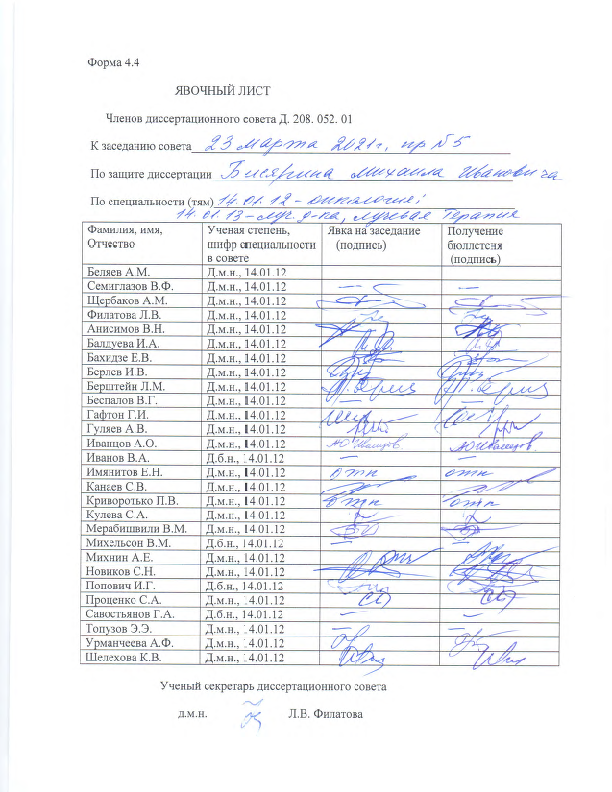 Форма 4.4
ЯВОЧНЫЙ ЛИСТ
Членов диссертационного совета Д. 208. 052. 01
К заседанию совета 23 марта 2021г, пр №5
По защите диссертации Бисярина Михаила Ивановича
По специальности (тям) 14.01.12 - онкология;
14.01.13 - луч. д-ка, лучевая терапия
Фамилия, имя, Отчество Ученая степень, шифр специальности в совете Явка на заседание (подпись) Получение бюллетеня (подпись)
Беляев А.М. Д.м.н., 14.01.12
Семиглазов В.Ф. Д.м.н., 14.01.12 — —
Щербаков А.М. Д.м.н., 14.01.12
Филатова Л.В. Д.м.н., 14.01.12
Анисимов В.Н. Д.м.н., 14.01.12
Балдуева И.А. Д.м.н., 14.01.12
Бахидзе Е.В. Д.м.н., 14.01.12
Берлев И.В. Д.м.н., 14.01.12
Берштейн Л.М. Д.м.н., 14.01.12
Беспалов В.Г. Д.м.н., 14.01.12 — —
Гафтон Г.И. Д.м.н., 14.01.12
Гуляев А.В. Д.м.н., 14.01.12
Иванцов А.О. Д.м.н., 14.01.12 АОИванцов. АОИванцов.
Иванов В.А. Д.б.н., 14.01.12 — —
Имянитов Е.Н. Д.м.н., 14.01.12 отк отк
Канаев С.В. Д.м.н., 14.01.12
Криворотько П.В. Д.м.н., 14.01.12 отк отк
Кулева С.А. Д.м.н., 14.01.12
Мерабишвили В.М. Д.м.н., 14.01.12
Михельсон В.М. Д.б.н., 14.01.12 — —
Михнин А.Е. Д.м.н., 14.01.12
Новиков С.Н. Д.м.н., 14.01.12
Попович И.Г. Д.б.н., 14.01.12
Проценко С.А. Д.м.н., 14.01.12
Савостьянов Г.А. Д.б.н., 14.01.12 — —
Топузов Э.Э. Д.м.н., 14.01.12 — —
Урманчеева А.Ф. Д.м.н., 14.01.12
Шелехова К.В. Д.м.н., 14.01.12
Ученый секретарь диссертационного совета
д.м.н. Л.Е. Филатова